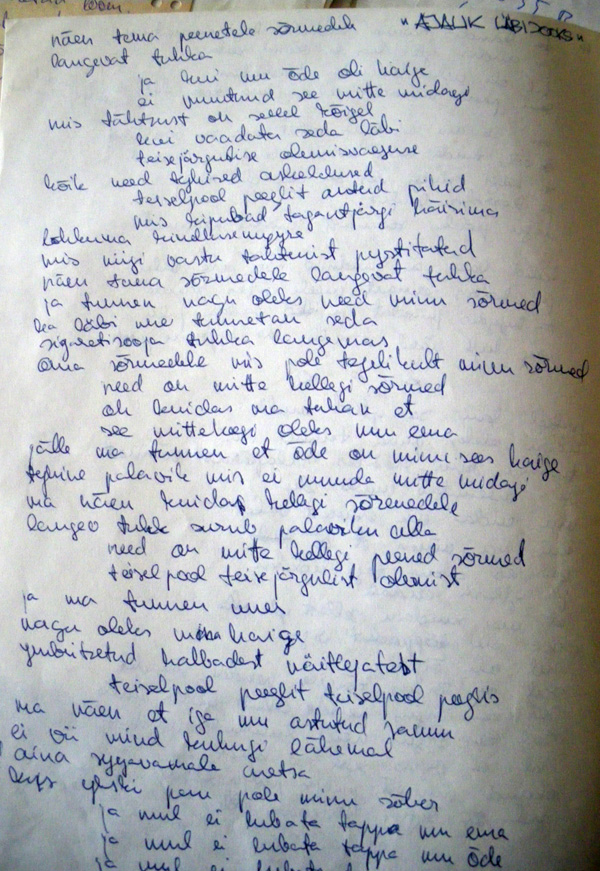 "AJALIK LÄBIJOOKS"
näen tema peenetele sõrmedele
langevat tuhka
ja kui mu õde oli haige
ei muutnud see mitte midagi
mis tähtsust on sellel kõigel
kui vaadata seda läbi
teisejärgulise olemisvaeguse
kõik need tühised askeldused
teiselpool peeglit antud pihid
mis kipubad tagantjärgi käärima
kohkuma kindlusemyyre
mis vastu tahtmist pystitatud
näen tema sõrmedele langevat tuhka
ja tunnen nagu oleks need minu sõrmed
ka läbi une tunnetan seda
sigaretisooja tuhka langemas
oma sõrmedele mis pole tegelikult minu sõrmed
need on mitte kellegi sõrmed
oh kuidas ma tahan et
see mittekeegi oleks mu ema
jälle ma tunnen et õde on minu sees haige
tugine palavik mis ei muuda mitte midagi
ma näen kuidas kellegi sõrmedele
langev tuhk surub palaviku alla
need on mitte kellegi peened sõrmed
teiselpool teisejärgulist olemist
ja ma tunnen unes
nagu oleks ma ka haige
ymbritsetud halbadest näitlejatest
teiselpool peeglit teiselpool peeglis
ma näen et iga mu astutud samm
ei vii mind kuhugi lähemal
aina sygavamale metsa
kus ykski puu pole minu sõber
ja mul ei lubata tappa mu ema
ja mul ei lubata tappa mu õde
ja mul ei lubata